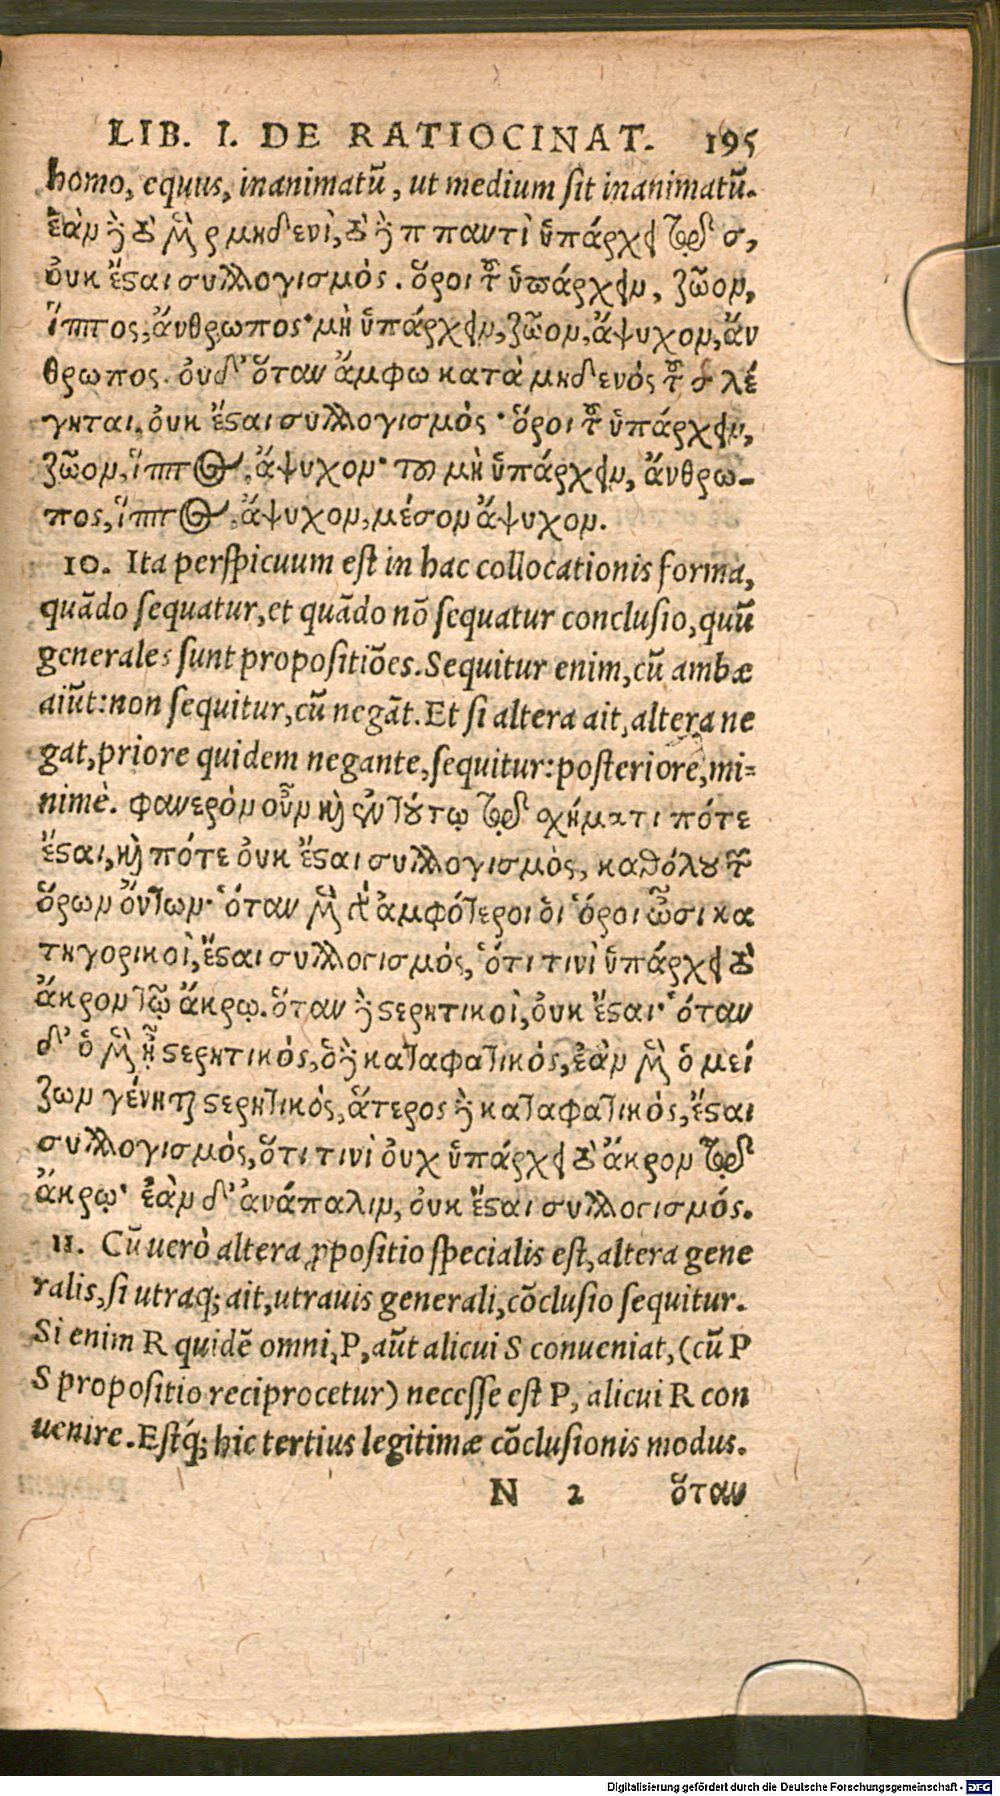 LIB. I. DE RATIOCINAT. 195
homo, equus, inanimatũ, ut medium sit inanimatũ.
ἐὰν δὲ τὸ μὲν ρ μηδενὶ, τὸ δὲ π παντὶ ὑπάρχει τῷ σ,
οὐκ ἔσαι συλλογισμός. ὅροι τοῦ ὑπάρχειν, ζῶον,
ἵππος, ἄνθρωπος· μὴ ὑπάρχειν, ζῶον, ἄψυχον, ἄν
θρωπος. οὐδ’ ὅταν ἄμφω κατὰ μηδενός τοῦ σ λέ
γηται, οὐκ ἔσαι συλλογισμός· ὅροι τοῦ ὑπάρχειν,
ζῶον, ἵππος, ἄψυχον· τοῦ μὴ ὑπάρχειν, ἄνθρω-
πος, ἵππος, ἄψυχον, μέσον ἄψυχον.
10. Ita perspicuum est in hac collocationis forma,
quãdo sequatur, et quãdo nõ sequatur conclusio, quũ
generales sunt propositiões. Sequitur enim, cũ ambæ
aiũt: non sequitur, cũ negãt. Et si altera ait, altera ne
gat, priore quidem negante, sequitur: posteriore, mi=
nimè. φανερὸν οὖν καὶ ἐν τούτῳ τῷ σχήματι πότε
ἔσαι, καὶ πότε οὐκ ἔσαι συλλογισμὸς, καθόλου τῶν
ὅρων ὄντων· ὅταν μὲν γὰρ ἀμφότεροι οἱ ὅροι ὦσι κα
τηγορικοὶ, ἔσαι συλλογισμός, ὅτι τινὶ ὑπάρχει τὸ
ἄκρον τῷ ἄκρῳ. ὅταν δὲ σερητικοὶ, οὐκ ἔσαι· ὅταν
δ’ ὁ μὲν ᾖ σερητικός, ὁ δὲ καταφατικός, ἐὰν μὲν ὁ μεί
ζων γένηται σερητικός, ἅτερος δὲ καταφατικός, ἔσαι
συλλογισμός, ὅτι τινὶ οὐχ ὑπάρχει τὸ ἄκρον τῷ
ἄκρῳ· ἐὰν δ’ ἀνάπαλιν, οὐκ ἔσαι συλλογισμός.
11. Cũ uerò altera ꝓpositio specialis est, altera gene
ralis, si utraq; ait, utrauis generali, cõclusio sequitur.
Si enim R quidẽ omni, P, aũt alicui S conueniat, (cũ P
S propositio reciprocetur) necesse est P, alicui R con
uenire. Estq́; hic tertius legitimæ cõclusionis modus.
N 2 ὅταν
Digitalisierung gefördert durch die Deutsche Forschungsgemeinschaft - DFG